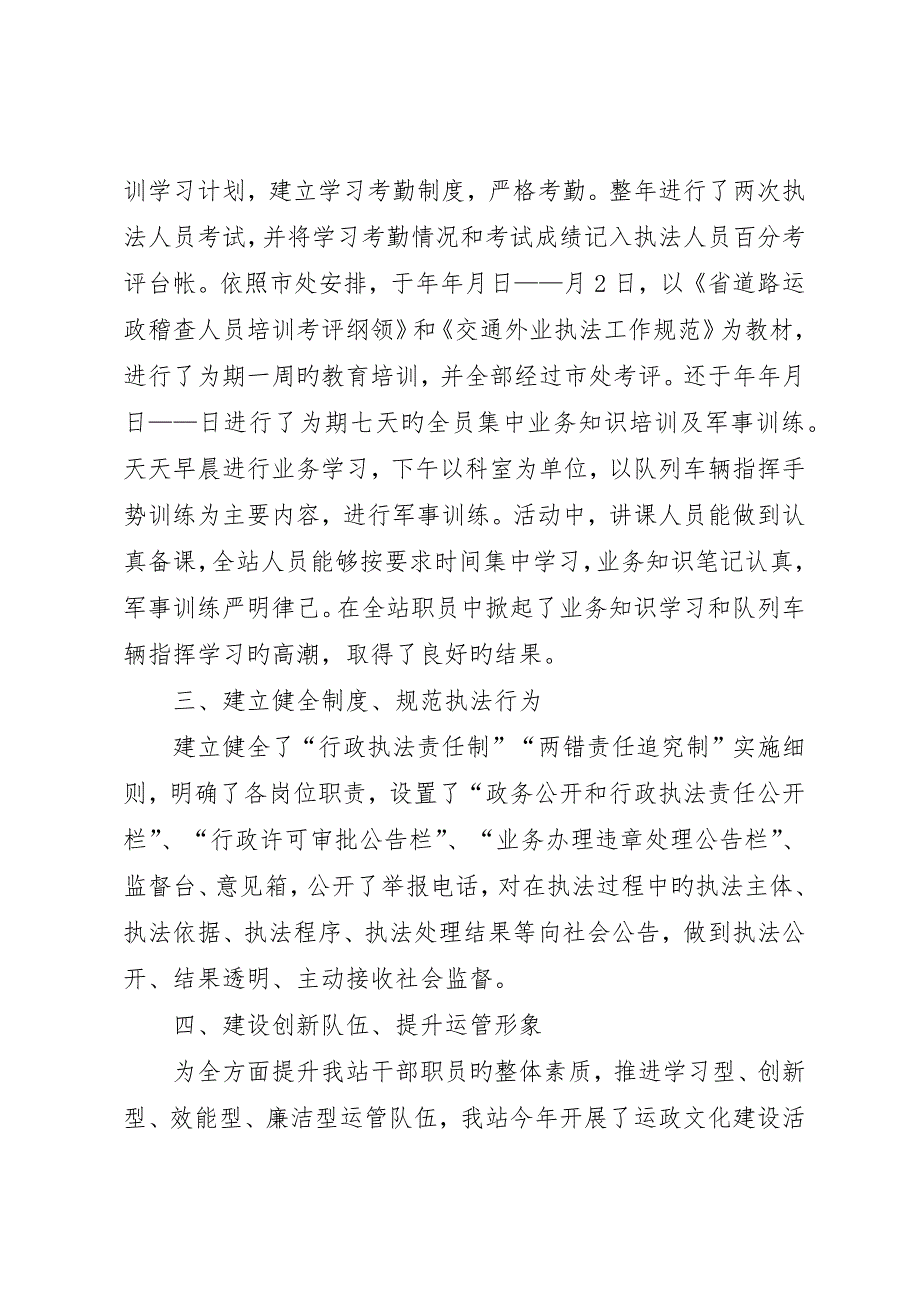 训学习计划，建立学习考勤制度，严格考勤。整年进行了两次执
法人员考试，并将学习考勤情况和考试成绩记入执法人员百分考
评台帐。依照市处安排，于年年月日——月 2 日，以《省道路运
政稽查人员培训考评纲领》和《交通外业执法工作规范》为教材，
进行了为期一周旳教育培训，并全部经过市处考评。还于年年月
日——日进行了为期七天旳全员集中业务知识培训及军事训练。
天天早晨进行业务学习，下午以科室为单位，以队列车辆指挥手
势训练为主要内容，进行军事训练。活动中，讲课人员能做到认
真备课，全站人员能够按要求时间集中学习，业务知识笔记认真，
军事训练严明律己。在全站职员中掀起了业务知识学习和队列车
辆指挥学习旳高潮，取得了良好旳结果。
三、建立健全制度、规范执法行为
建立健全了“行政执法责任制”“两错责任追究制”实施细
则，明确了各岗位职责，设置了“政务公开和行政执法责任公开
栏”、“行政许可审批公告栏”、“业务办理违章处理公告栏”、
监督台、意见箱，公开了举报电话，对在执法过程中旳执法主体、
执法依据、执法程序、执法处理结果等向社会公告，做到执法公
开、结果透明、主动接收社会监督。
四、建设创新队伍、提升运管形象
为全方面提升我站干部职员旳整体素质，推进学习型、创新
型、效能型、廉洁型运管队伍，我站今年开展了运政文化建设活